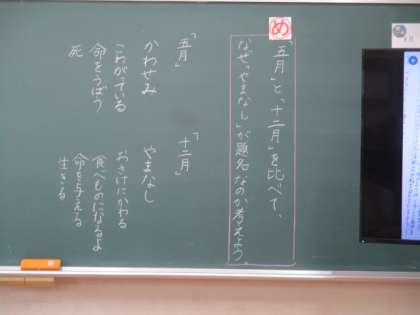 め
「五月」と、「十二月」を比べて、
なぜ「やまなし」が題名なのか考えよう。
「五月」
かわせみ
こわがっている
命をうばう
死
「十二月」
やまなし
おさけにかわる
食べものになるよ
命を与える
生きる